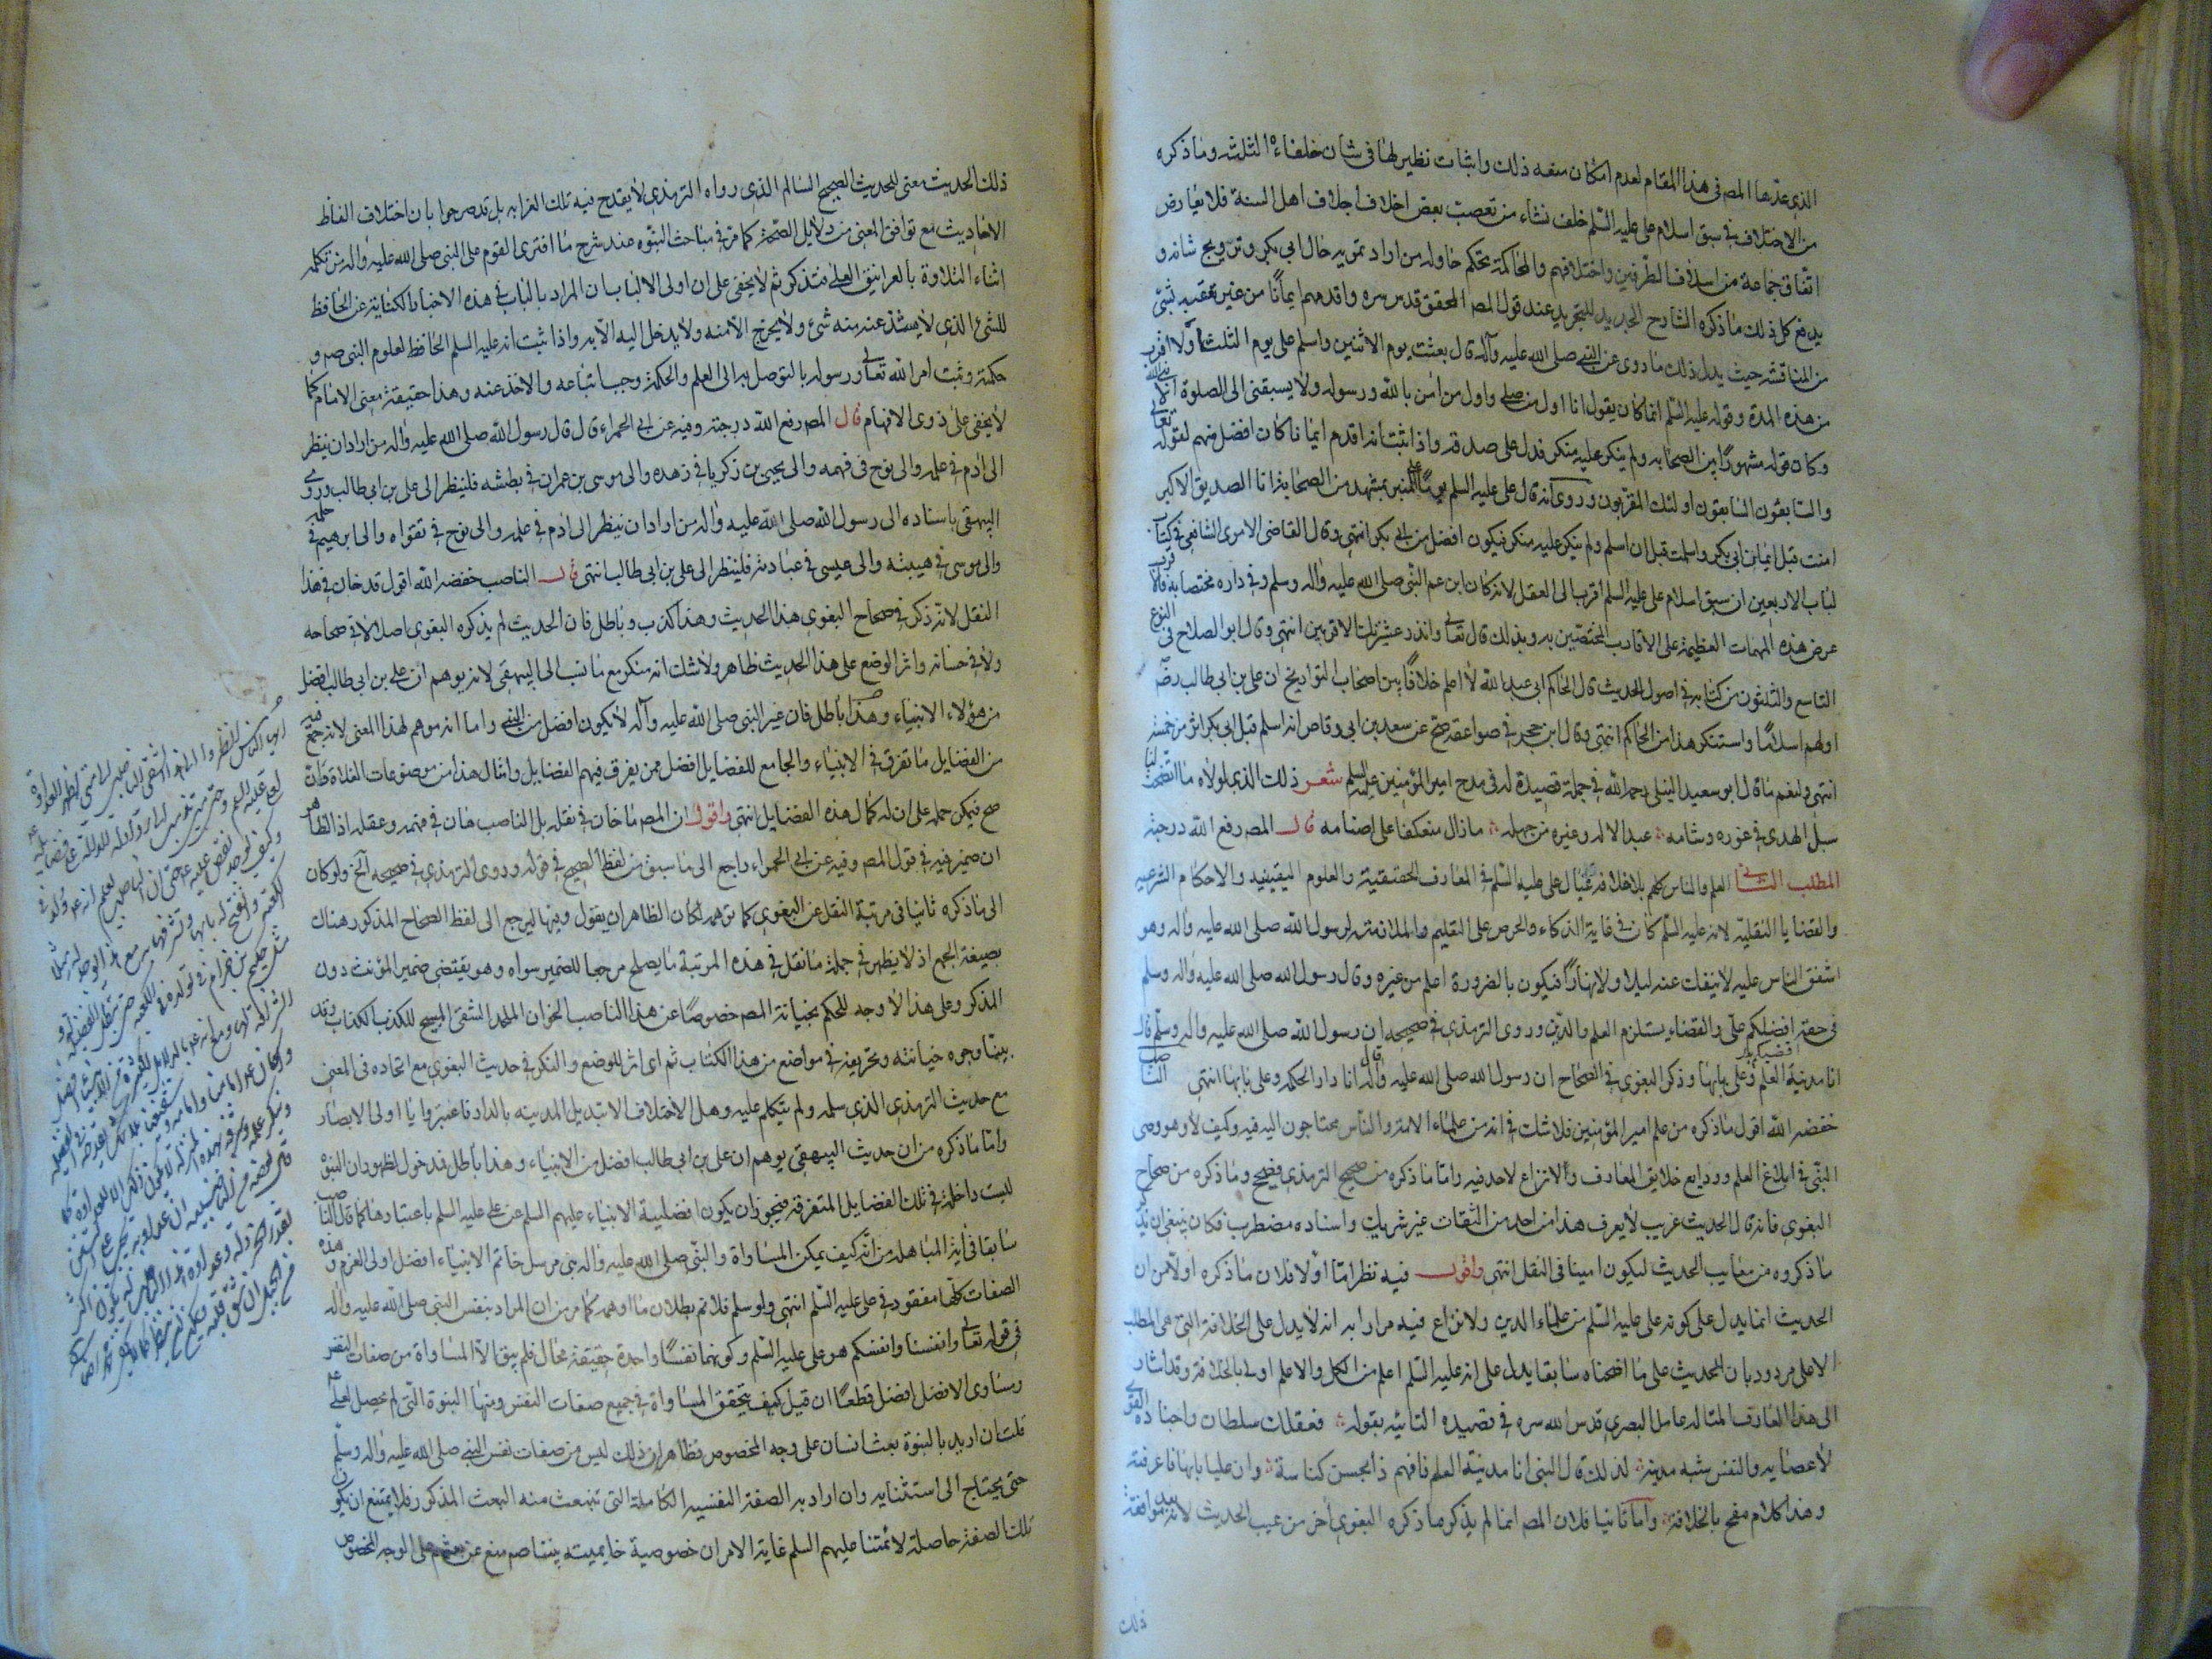 الذي عدها المص في هذا المقام لعدم امكان منعه ذلك واثبات نظير لها في شان خلفاءه الثلثه وما ذكره
من الاختلاف في سبق اسلام علي عليه السلم خلف نشاء من تعصب بعض اخلاف اجلاف اهل السنة فلا يعارض
اتفاق جماعة من اسلاف الطرفين واختلافهم والمحاكمة تحكم حاوله من اراد تمويه حال ابي بكر وترويج شانه و
يدفع كل ذلك ما ذكره الشارح الجديد للتجريد عند قول المص المحقق قدس سره واقدمهم ايمانا من غير تعقبه بشئ
من المناقشه حيث يدل ذلك ما روى عن النبي صلى الله عليه وآله قال بعثت يوم الاثنين واسلم علي يوم الثلثا ولا اقرب
من هذه المدة وقوله عليه السلم انما كان يقول انا اول من صلى واول من آمن بالله ورسوله ولا يسبقني الى الصلوة الا نبي الله
وكان قوله مشهورا بين الصحابه ولم ينكر عليه منكر فدل على صدقه واذا ثبت انه اقدم ايمانا كان افضل منهم لقوله تعالى
والسابقون السابقون اولئك المقربون وروى انه قال علي عليه السلم يوما على المنبر بمشهد من الصحابة انا الصديق الاكبر
امنت قبل ايمان ابي بكر واسلمت قبل ان اسلم ولم ينكر عليه منكر فيكون افضل من ابي بكر انتهى وقال القاضي الاموي الشافعي في كتاب
لباب الاربعين ان سبق اسلام علي عليه السلم اقرب الى العقل لانه كان ابن عم النبي صلى الله عليه وآله وسلم وفي داره مختصا به
عرض هذه المهمات العظيمة على الاقارب المختصين به وبذلك قال تعالى وانذر عشيرتك الاقربين انتهى وقال ابو الصلاح في النوع
التاسع والثلثون من كتابه في اصول الحديث قال الحاكم ابي عبد الله لا اعلم خلافا بين اصحاب التواريخ ان علي بن ابي طالب رض
اولهم اسلاما واستنكر هذا من الحاكم انتهى وقال ابن حجر في صواعقه صح عن سعد بن ابي وقاص انه اسلم قبل ابي بكر اكثر من خمسة
انتهى ولنعم ما قال ابو سعيد النيلي رحمه الله في جملة قصيدة له في مدح امير المؤمنين عليه السلم شعر ذلك الذي لولاه ما اتضحت لنا
سبل الهدى في غوره وشامه عبد الاله وغيره من جهله ما زال منعكفا على اصنامه قال المص رفع الله درجته
المطلب الثاني العلم والناس كلهم بلا خلاف عيال علي عليه السلم في المعارف الحقيقية والعلوم اليقينيه والاحكام الشرعيه
والقضايا النقليه لانه عليه السلم كان في غاية الذكاء والحرص على التعليم والملازمة لرسول الله صلى الله عليه وآله وهو
اشفق الناس عليه لا ينفك عنه ليلا ولا نهارا فيكون بالضرورة اعلم من غيره وقال رسول الله صلى الله عليه وآله وسلم
في حقه اقضيكم علي والقضاء يستلزم العلم والدين وروى الترمذي في صحيحه ان رسول الله صلى الله عليه وآله وسلم قال
انا مدينة العلم وعلي بابها وذكر البغوي في الصحاح ان رسول الله صلى الله عليه وآله قال انا دار الحكمه وعلي بابها انتهى قال الناصب
خفضه الله اقول ما ذكره من علم امير المؤمنين فلا شك في انه من علماء الامة والناس محتاجون اليه فيه وكيف لا وهو وصي
النبي في ابلاغ العلم وودايع خلايق المعارف ولا نزاع لاحد فيه واما ما ذكره من صحيح الترمذي فصحيح وما ذكره من صحاح
البغوي فانه قال الحديث غريب لا يعرف هذا من احد من الثقات غير شريك واسناده مضطرب فكان ينبغي ان يذكر
ما ذكروه من معايب الحديث ليكون امينا في النقل انتهى واقول فيه نظر اما اولا فلان ما ذكره اولا من ان
الحديث انما يدل على كونه علي عليه السلم من علماء الدين ولا نزاع فيه مرادا به انه لا يدل على الخلافة التي هي المطلب
الاعلى مردود بان الحديث على ما اوضحناه سابقا يدل على انه عليه السلم اعلم من الكل والاعلم اولى بالخلافة وقد اشار
الى هذا العارف المتاله عامل البصري قدس الله سره في قصيده التائيه بقوله فعقلك سلطان واجناده القوى
لاعضايه والنفس شبه مدينة لذلك قال النبي انا مدينة العلم فافهم ذا بحسن كناسة وان عليا بابها فاعرفنه
وهذا كلام مفصح بالخلافة واما ثانيا فلان المص انما لم يذكر ما ذكره البغوي آخر من عيب الحديث لانه بعد موافقة
ذلك
ذلك الحديث معنى للحديث الصحيح السالم الذي رواه الترمذي لا يقدح فيه تلك الغرابه بل قد صرحوا بان اختلاف الفاظ
الاحاديث مع توافق المعنى من دلايل الصحة كما مر في مباحث النبوه عند شرح ما افترى القوم على النبي صلى الله عليه وآله من تكلمه
اثناء التلاوة بالغرانيق العلى فتذكر ثم لا يخفى على ان اولى الالباب ان المراد بالباب في هذه الاخبار الكناية عن الحافظ
للشئ الذي لا يشذ عنه منه شئ ولا يخرج الا منه ولا يدخل اليه الا به واذا ثبت انه عليه السلم الحافظ لعلوم النبي ص و
حكمته وثبت امر الله تعالى ورسوله بالتوصل به الى العلم والحكمة وجب اتباعه والاخذ عنه وهذا حقيقة معنى الامام كما
لا يخفى على ذوى الافهام قال المص رفع الله درجته وفيه عن ابي الحمراء قال قال رسول الله صلى الله عليه وآله من اراد ان ينظر
الى ادم في علمه والى نوح في فهمه والى يحيى بن زكريا في زهده والى موسى بن عمران في بطشه فلينظر الى علي بن ابي طالب وروى
البيهقي باسناده الى رسول الله صلى الله عليه وآله من اراد ان ينظر الى ادم في علمه والى نوح في تقواه والى ابرهيم في حلمه
والى موسى في هيبته والى عيسى في عبادته فلينظر الى علي بن ابي طالب انتهى قال الناصب خفضه الله اقول قد خان في هذا
النقل لانه ذكر في صحاح البغوي هذا الحديث وهذا كذب وباطل فان الحديث لم يذكره البغوي اصلا لا في صحاحه
ولا في حسانه واثر الوضع على هذا الحديث ظاهر ولا شك انه منكر مع ما نسب الى البيهقي لانه يوهم ان علي بن ابي طالب افضل
من هؤلاء الانبياء وهذا باطل فان غير النبي صلى الله عليه وآله لا يكون افضل من النبي واما انه موهم لهذا المعنى لانه جمع فيه
من الفضايل ما تفرق في الانبياء والجامع للفضايل افضل ممن يفرق فيهم الفضايل وامثال هذا من موضوعات الغلاة فان
صح فيمكن حمله على ان له كمال هذه الفضايل انتهى واقول ان المص ما خان في نقله بل الناصب خان في فهمه وعقله اذ الظاهر
ان ضمير فيه في قول المص وفيه عن ابي الحمراء راجع الى ما سبق من لفظ الصحيح في قوله وروى الترمذي في صحيحه الخ ولو كان
الى ما ذكره ثانيا في مرتبة النقل عن البغوي كما توهمه لكان الظاهر ان يقول وفيها ليرجع الى لفظ الصحاح المذكور هناك
بصيغة الجمع اذ لا يظهر في جملة ما نقل في هذه المرتبة ما يصلح مرجعا للضمير سواه وهو يقتضي ضمير المؤنث دون
المذكر وعلى هذا لا وجه للحكم بخيانة المص خصوصا عن هذا الناصب الخوان الملحد الشقي المبيح للكذب الكذاب وقد
بينا وجوه خيانته وتحريفه في مواضع من هذا الكتاب ثم اى اثر للوضع والنكر في حديث البغوي مع اتحاده في المعنى
مع حديث الترمذي الذي سلمه ولم يتكلم عليه وهل الاختلاف الا تبديل المدينه بالدار فاعتبروا يا اولى الابصار
واما ما ذكره من ان حديث البيهقي يوهم ان علي بن ابي طالب افضل من الانبياء وهذا باطل فمدخول لظهور ان النبوة
ليست داخلة في تلك الفضايل المتفرقة فيجوز ان يكون افضلية الانبياء عليهم السلم عن علي عليه السلم باعتبارها كما قال الناصب
سابقا في آية المباهله من انه كيف يمكن المساواة والنبي صلى الله عليه وآله نبي مرسل خاتم الانبياء افضل اولى العزم وهذه
الصفات كلها مفقود في علي عليه السلم انتهى ولو سلم فلا تم بطلان ما اوهمه كما مر من ان المراد بنفس النبي صلى الله عليه وآله
في قوله تعالى وانفسنا وانفسكم هو علي عليه السلم وكونهما نفسا واحدة حقيقة محال فلم يبق الا المساواة من صفات النفس
ومساوى الافضل افضل قطعا ان قيل كيف يتحقق المساواة في جميع صفات النفس ومنها النبوة التي لم تحصل لعلي ع
قلت ان اريد بالنبوة بعث انسان على وجه المخصوص فظاهر ان ذلك ليس من صفات نفس النبي صلى الله عليه وآله وسلم
حتى يحتاج الى استثنايه وان اراد به الصفة النفسيه الكاملة التي تنبعث منه البعث المذكور فلا يمتنع ان يكون
تلك الصفة حاصلة لائمتنا عليهم السلم غاية الامر ان خصوصية خاتميته نبينا صم منع عن بعثهم على الوجه المخصوص